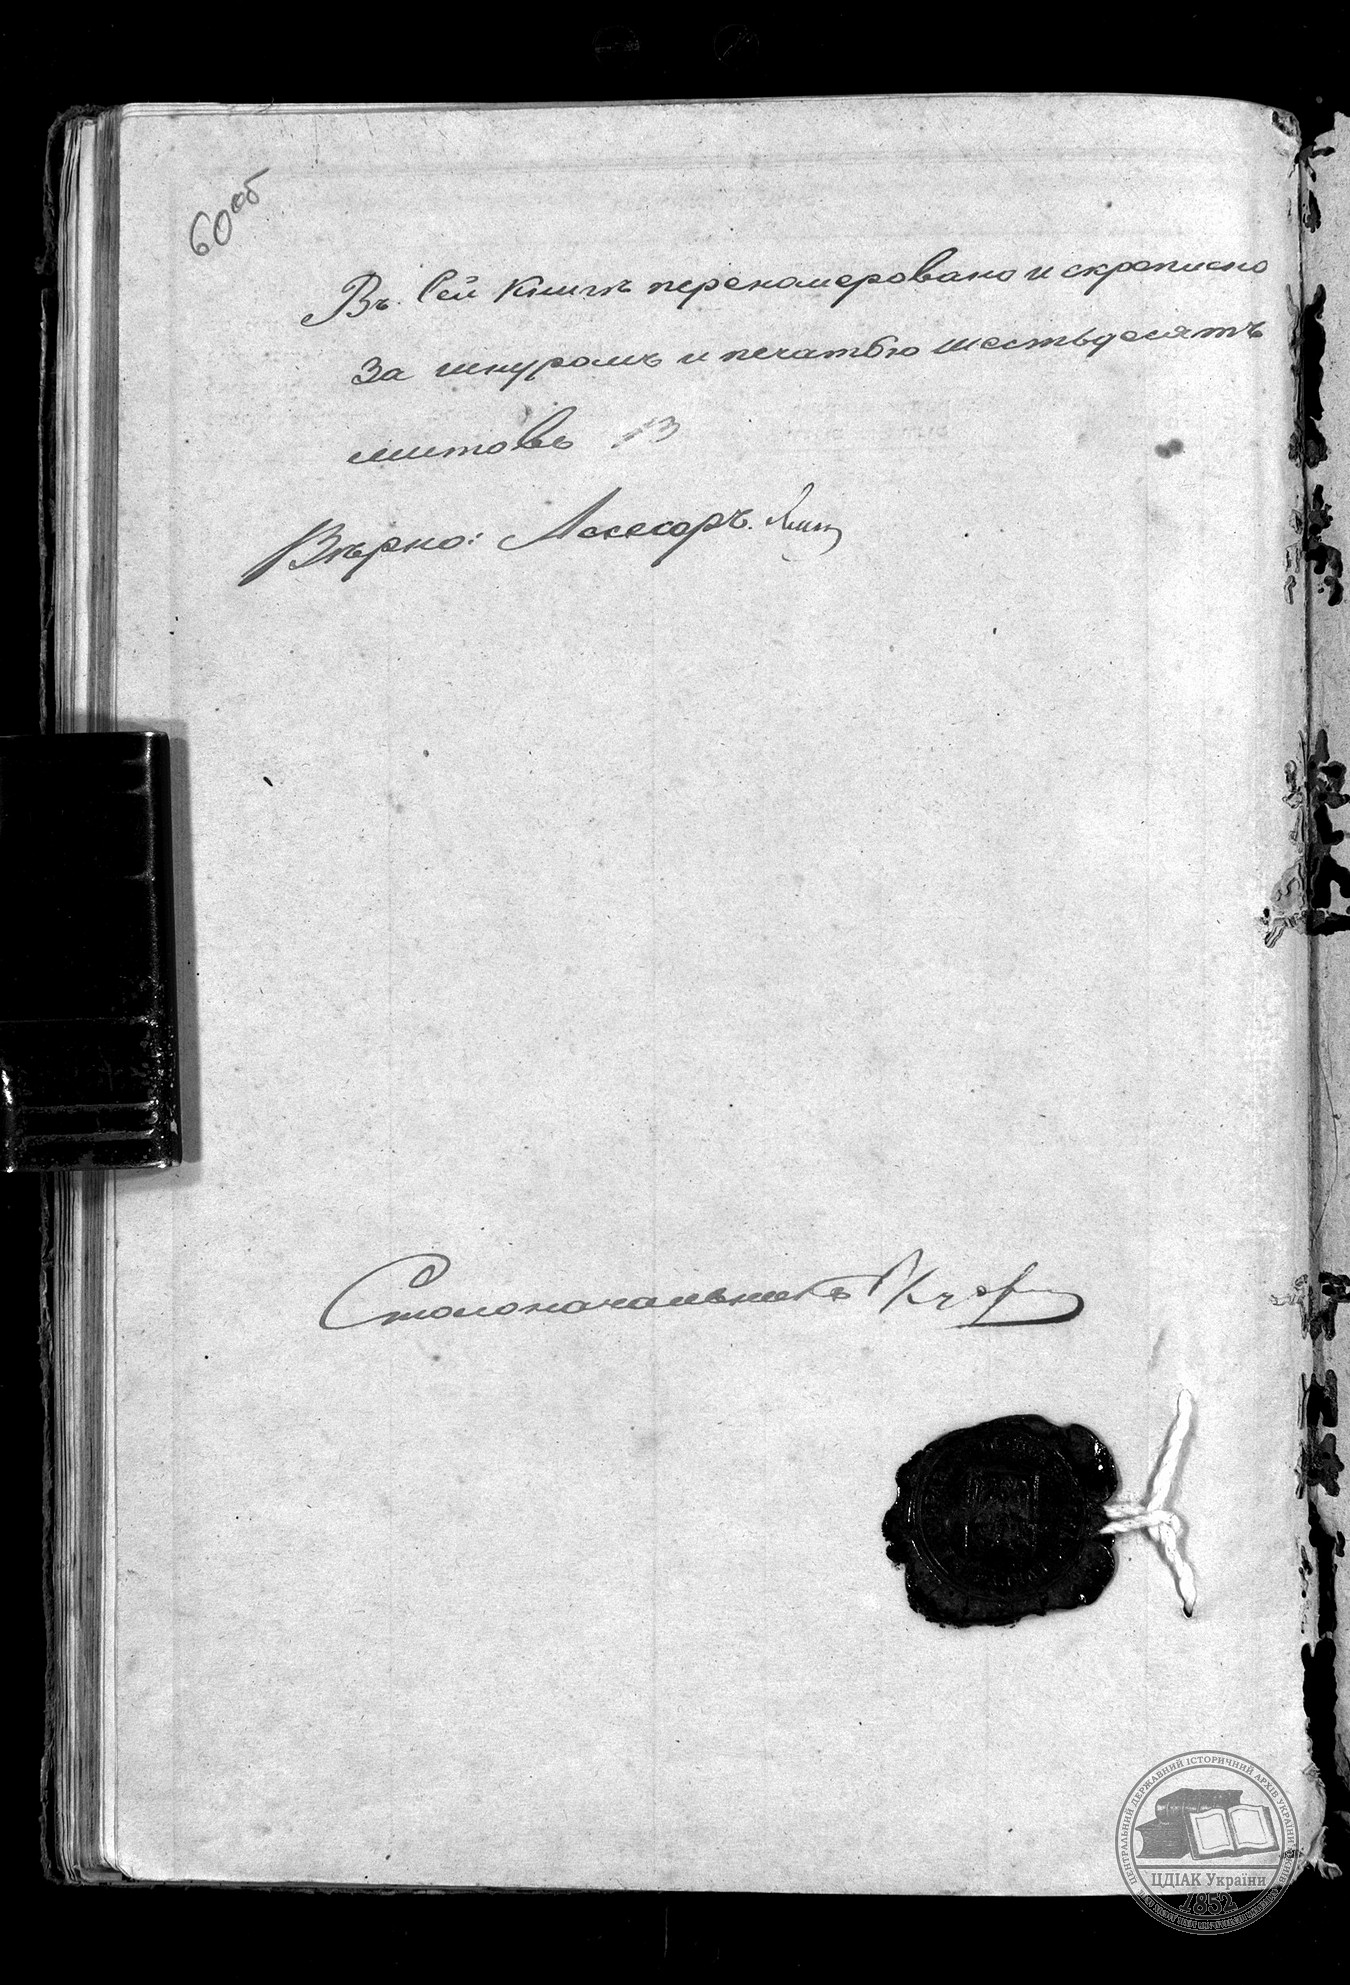 60 об
Въ Сей Книгѣ переномеровано и скреплено
за шнуромъ и печатью шестьдесятъ
листовъ
Вѣрно: Асесоръ
Столоначальникъ
ЦЕНТРАЛЬНИЙ ДЕРЖАВНИЙ ІСТОРИЧНИЙ АРХІВ УКРАЇНИ
ЦДІАК України
1852